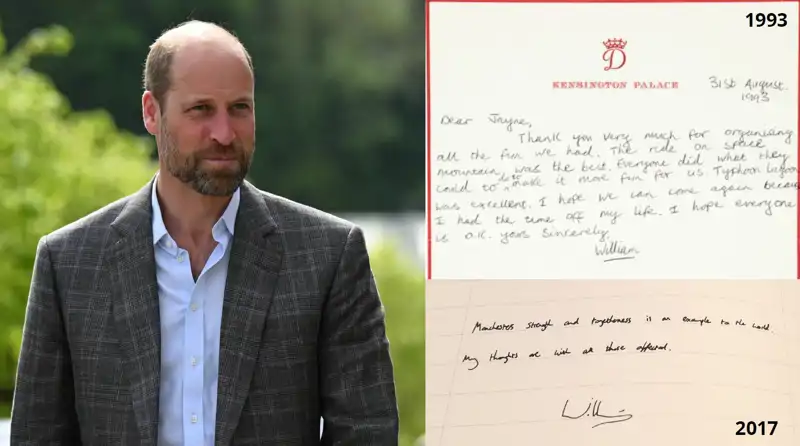 1993
D
KENSINGTON PALACE
31st August.
1993
Dear Jayne,
Thank you very much for organising
all the fun we had. The ride on space
mountain, was the best. Everyone did what they
could to make it more fun for us. Typhoon lagoon
was excellent. I hope we can come again because
I had the time off my life. I hope everyone
is O.K. yours sincerely,
William
Manchesters strength and togetherness is an example to the world.
My thoughts are with all those affected.
William
2017